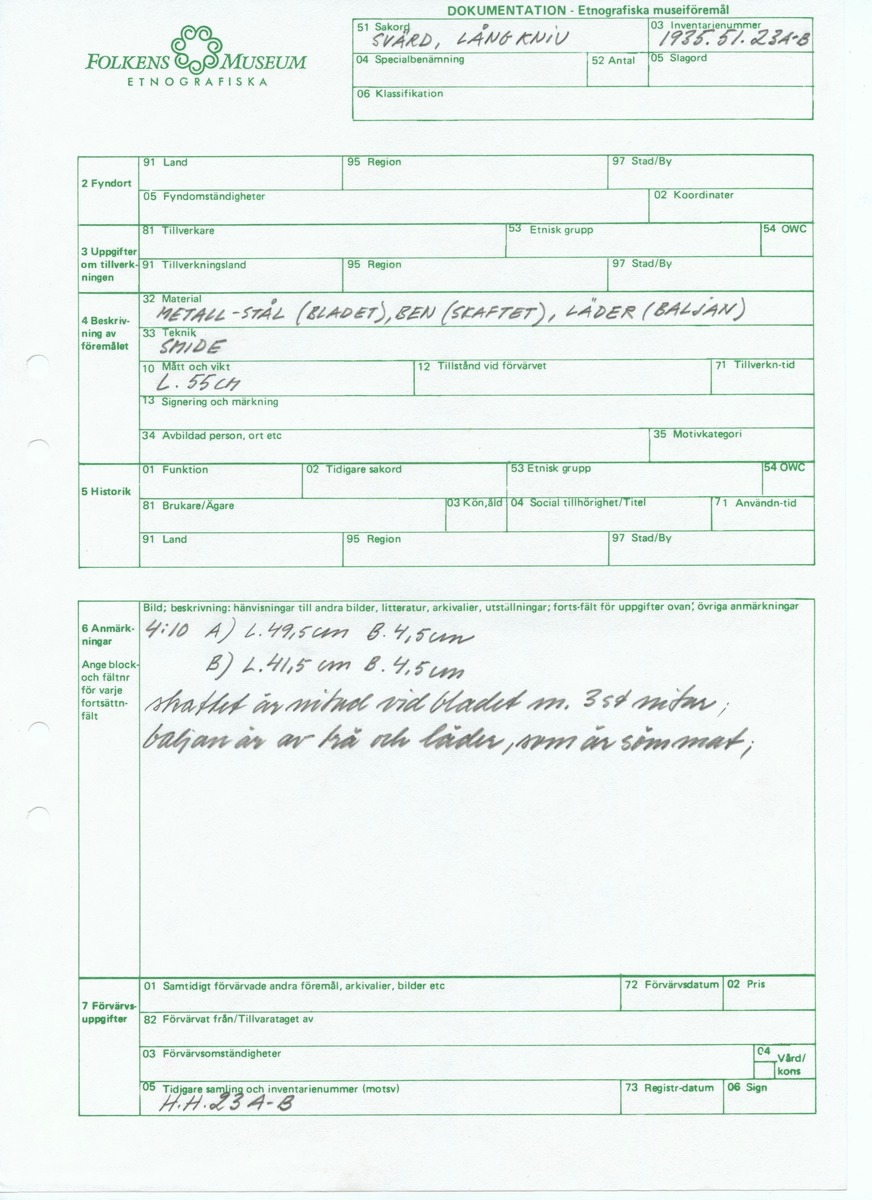 DOKUMENTATION - Etnografiska museiföremål
FOLKENS MUSEUM
ETNOGRAFISKA
51 Sakord
SVÄRD, LÅNG KNIV
03 Inventarienummer
1935.51.23A-B
04 Specialbenämning
52 Antal
05 Slagord
06 Klassifikation
2 Fyndort
91 Land
95 Region
97 Stad/By
05 Fyndomständigheter
02 Koordinater
3 Uppgifter om tillverkningen
81 Tillverkare
53 Etnisk grupp
54 OWC
91 Tillverkningsland
95 Region
97 Stad/By
4 Beskrivning av föremålet
32 Material
METALL-STÅL (BLADET), BEN (SKAFTET), LÄDER (BALJAN)
33 Teknik
SMIDE
10 Mått och vikt
L. 55 cm
12 Tillstånd vid förvärvet
71 Tillverkn-tid
13 Signering och märkning
34 Avbildad person, ort etc
35 Motivkategori
5 Historik
01 Funktion
02 Tidigare sakord
53 Etnisk grupp
54 OWC
81 Brukare/Ägare
03 Kön,åld
04 Social tillhörighet/Titel
71 Användn-tid
91 Land
95 Region
97 Stad/By
6 Anmärkningar
Ange block- och fältnr för varje fortsättn-fält
Bild; beskrivning: hänvisningar till andra bilder, litteratur, arkivalier, utställningar; forts-fält för uppgifter ovan; övriga anmärkningar
4:10 A) L. 49,5 cm B. 4,5 cm
B) L. 41,5 cm B. 4,5 cm
skaftet är nitad vid bladet m. 3 st nitar;
baljan är av trä och läder, som är sömmat;
7 Förvärvsuppgifter
01 Samtidigt förvärvade andra föremål, arkivalier, bilder etc
72 Förvärvsdatum
02 Pris
82 Förvärvat från/Tillvarataget av
03 Förvärvsomständigheter
04 Vård/kons
05 Tidigare samling och inventarienummer (motsv)
H.H.23 A-B
73 Registr-datum
06 Sign